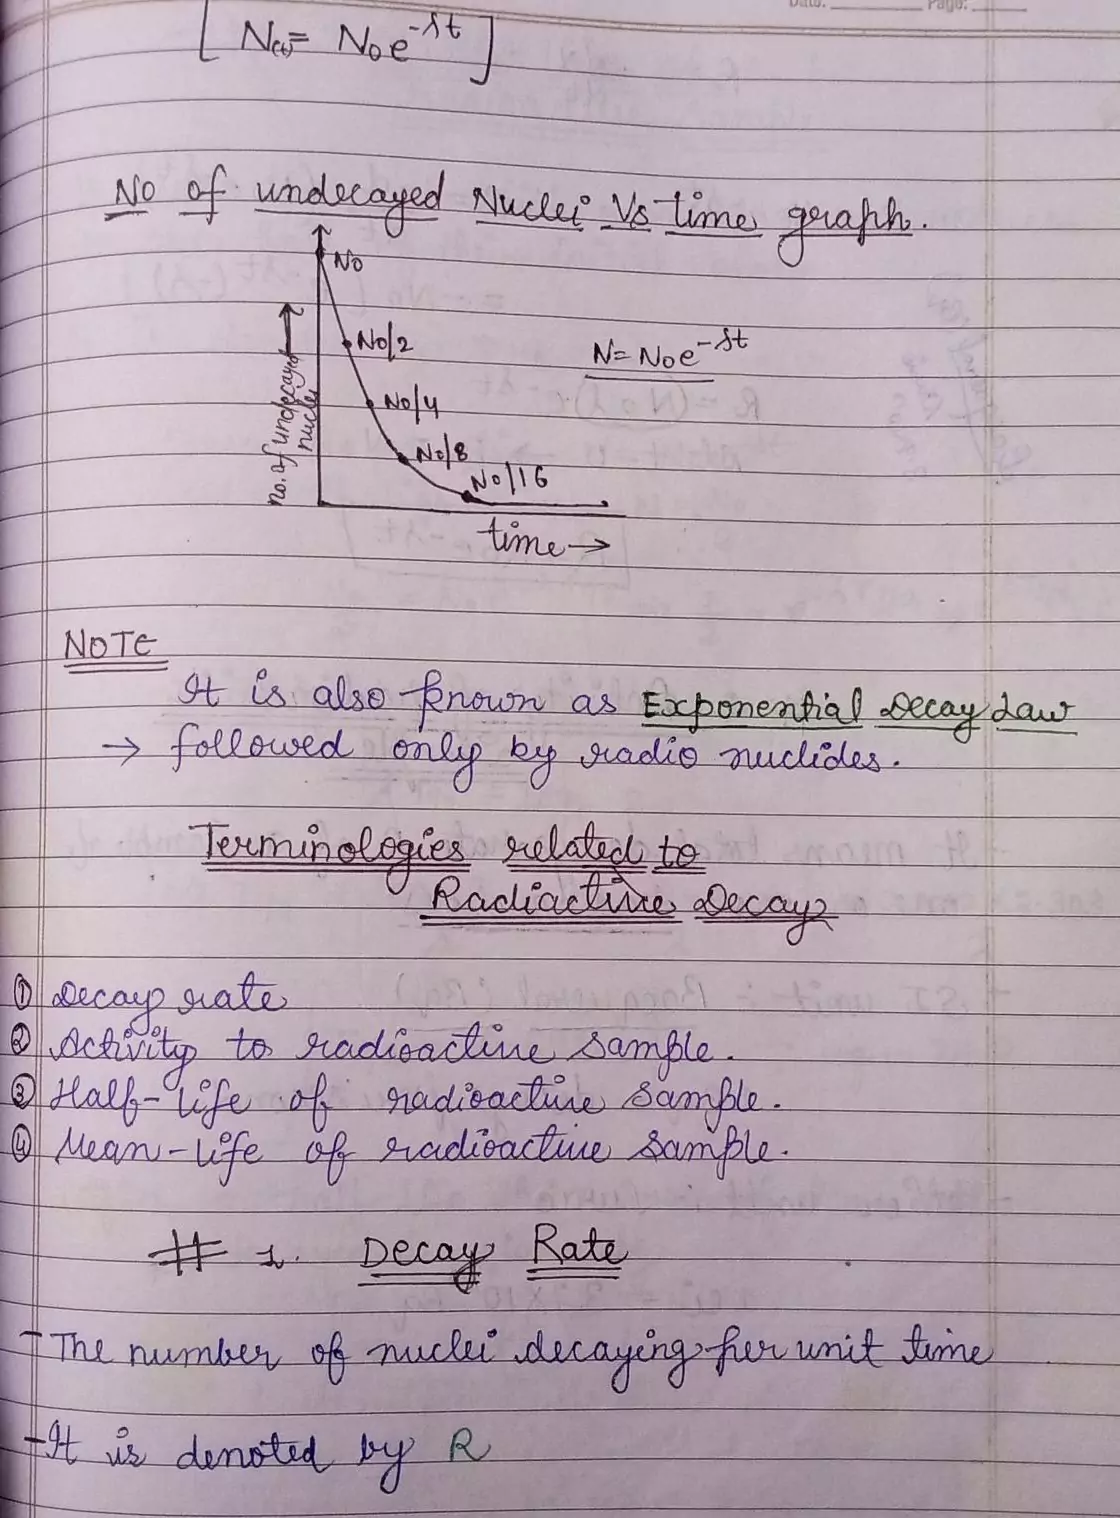 Date: Page:
[N(t)= N₀e^-λt]
No of undecayed Nuclei Vs time graph.
N₀
N₀/2
N= N₀e^-λt
N₀/4
N₀/8
N₀/16
no. of undecayed
nuclei
time →
NOTE
It is also known as Exponential Decay Law
→ followed only by radio nuclides.
Terminologies related to
Radiactive Decay
① Decay rate
② Activity to radioactive sample.
③ Half-life of radioactive sample.
④ Mean-life of radioactive sample.
# 1. Decay Rate
- The number of nuclei decaying per unit time
- It is denoted by R